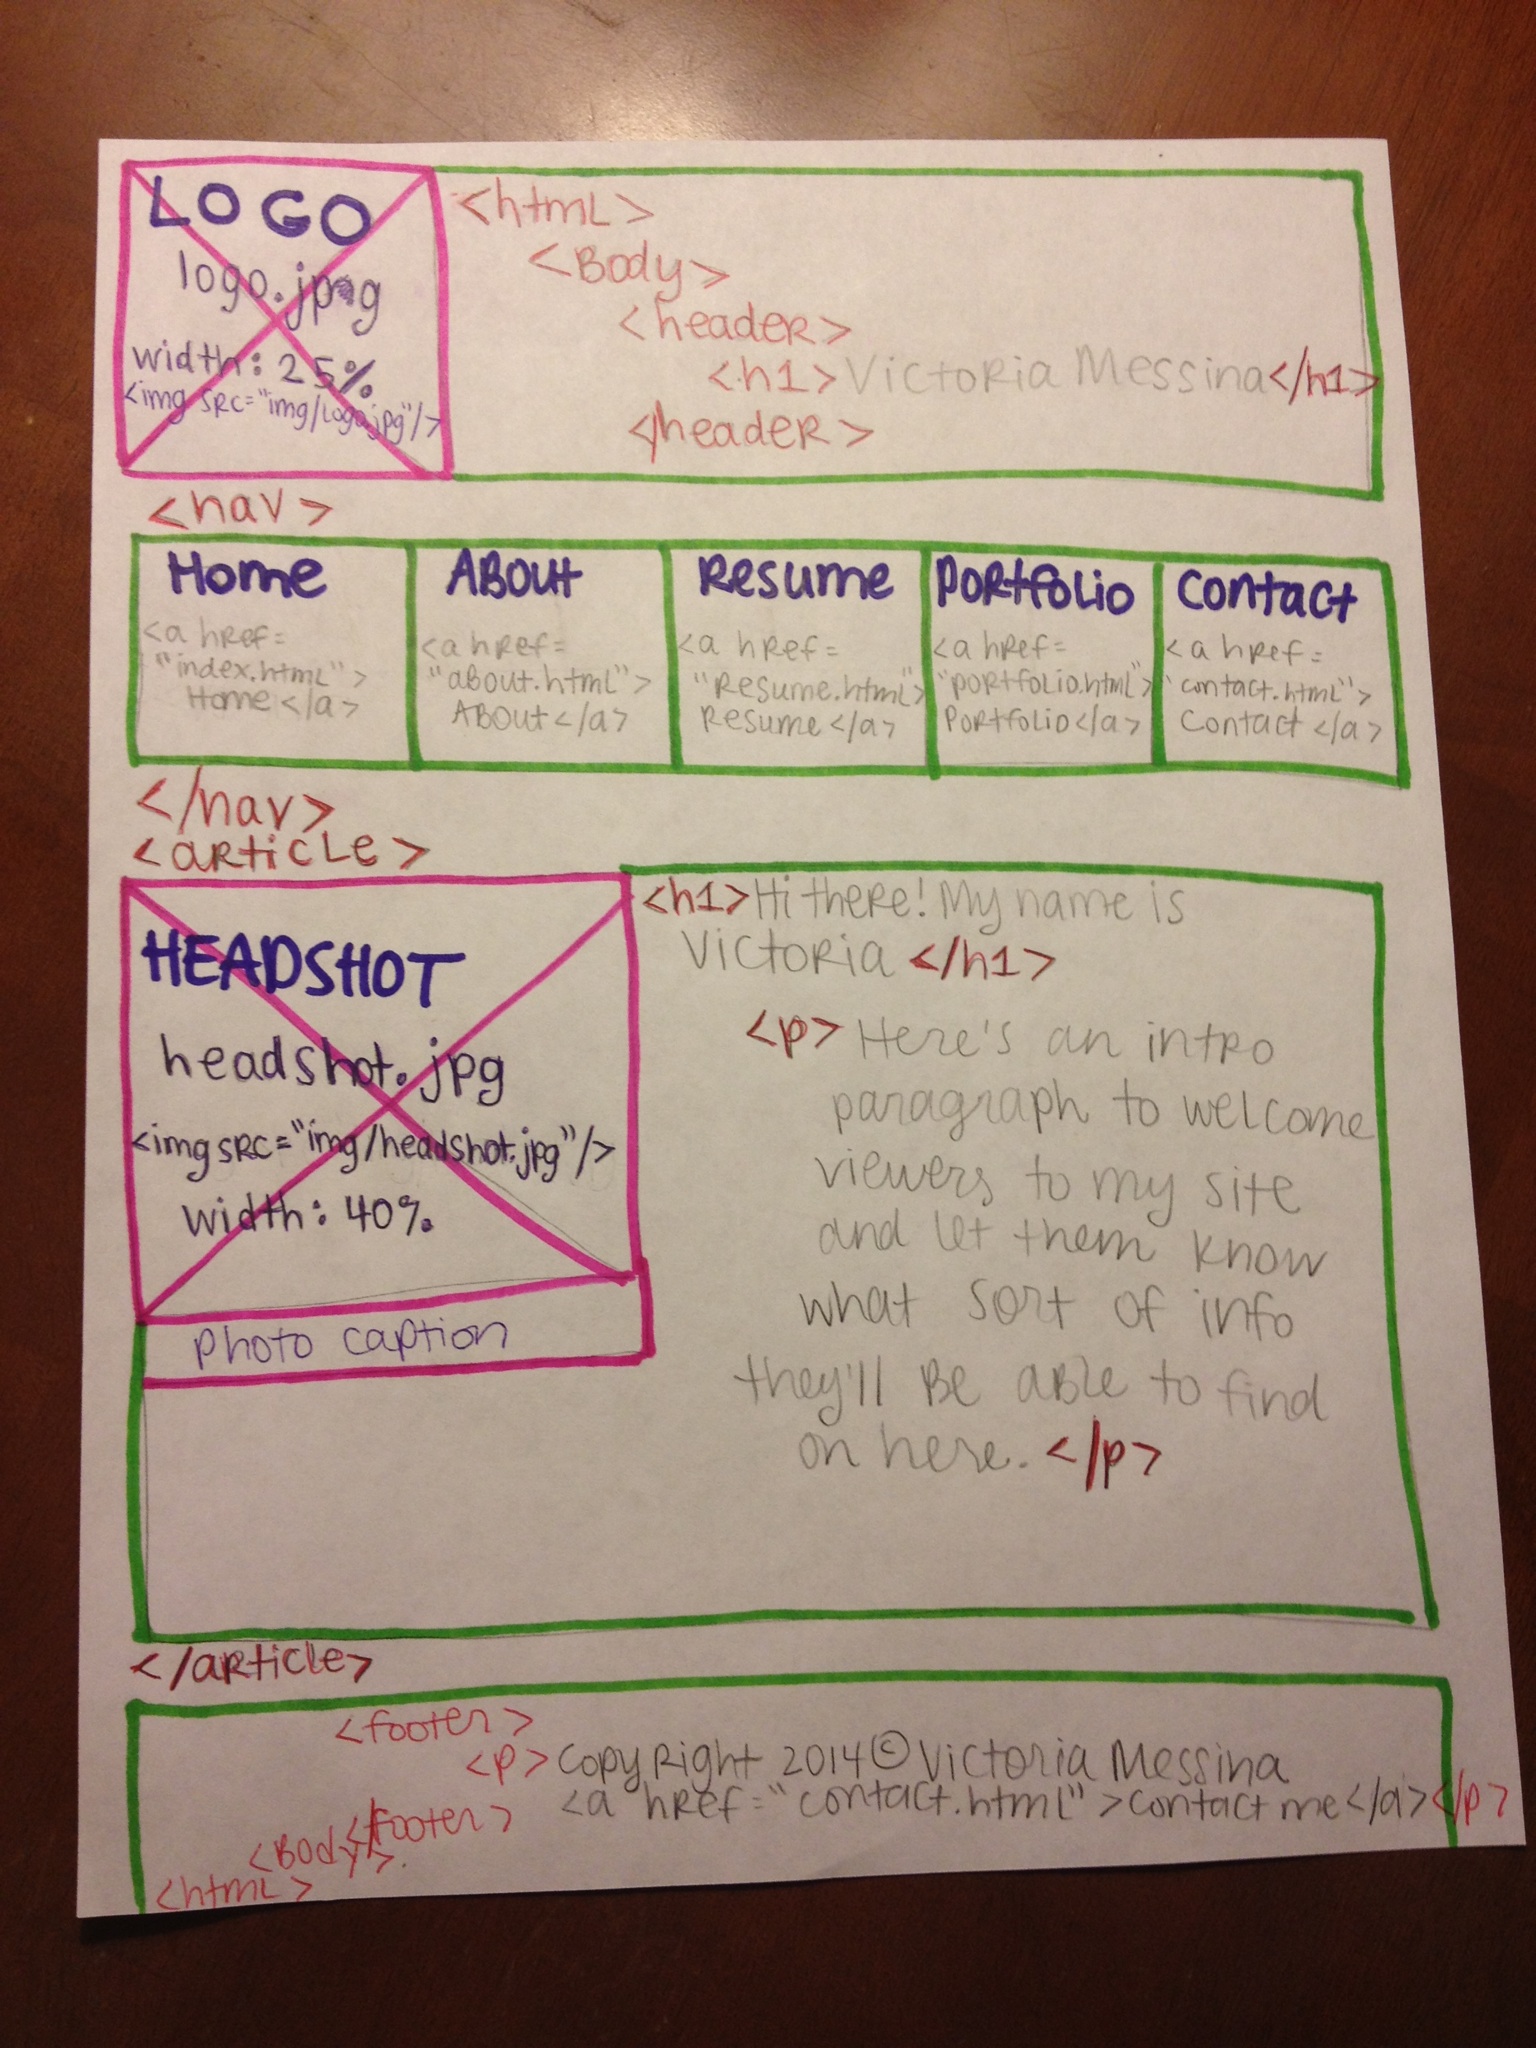 LOGO
logo.jpg
width: 25%
<img src="img/logo.jpg"/>
<html>
<Body>
<header>
<h1>Victoria Messina</h1>
</header>
<nav>
Home
<a href=
"index.html">
Home</a>
About
<a href=
"about.html">
About</a>
Resume
<a href=
"resume.html>
Resume</a>
Portfolio
<a href=
"portfolio.html">
Portfolio</a>
Contact
<a href=
"contact.html">
Contact</a>
</nav>
<article>
HEADSHOT
headshot.jpg
<img src="img/headshot.jpg"/>
width: 40%
photo caption
<h1>Hi there! My name is
Victoria</h1>
<p>Here's an intro
paragraph to welcome
viewers to my site
and let them know
what sort of info
they'll be able to find
on here.</p>
</article>
<footer>
<p>Copyright 2014©Victoria Messina
<a href="contact.html">contact me</a></p>
</footer>
<Body>
<html>